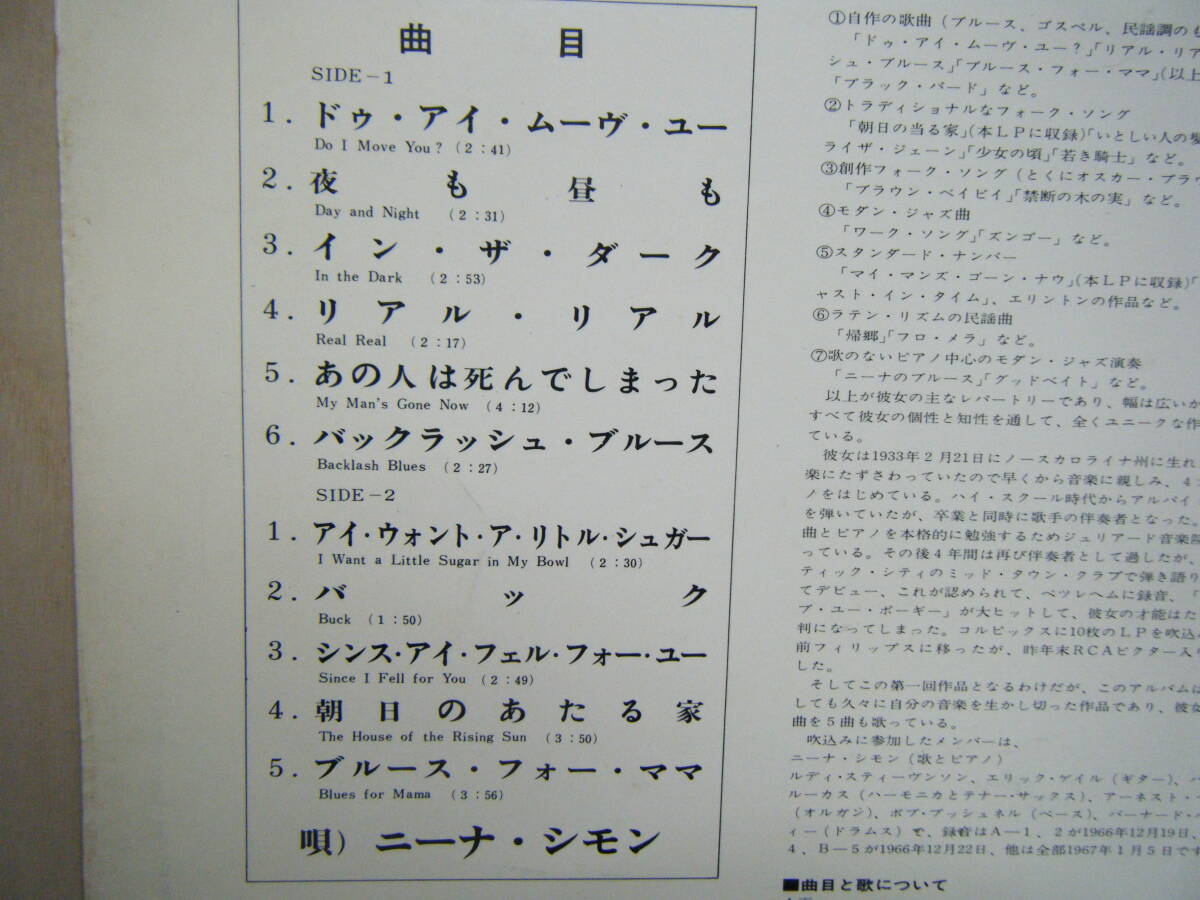 曲 目
SIDE－1
1. ドゥ・アイ・ムーヴ・ユー
Do I Move You? (2:41)
2. 夜も昼も
Day and Night (2:31)
3. イン・ザ・ダーク
In the Dark (2:53)
4. リアル・リアル
Real Real (2:17)
5. あの人は死んでしまった
My Man's Gone Now (4:12)
6. バックラッシュ・ブルース
Backlash Blues (2:27)
SIDE－2
1. アイ・ウォント・ア・リトル・シュガー
I Want a Little Sugar in My Bowl (2:30)
2. バック
Buck (1:50)
3. シンス・アイ・フェル・フォー・ユー
Since I Fell for You (2:49)
4. 朝日のあたる家
The House of the Rising Sun (3:50)
5. ブルース・フォー・ママ
Blues for Mama (3:56)
唄) ニーナ・シモン
①自作の歌曲（ブルース、ゴスペル、民謡調のも
「ドゥ・アイ・ムーヴ・ユー？」「リアル・リア
シュ・ブルース」「ブルース・フォー・ママ」（以上
「ブラック・バード」など。
②トラディショナルなフォーク・ソング
「朝日の当る家」（本ＬＰに収録）「いとしい人の髪
ライザ・ジェーン」「少女の頃」「若き騎士」など。
③創作フォーク・ソング（とくにオスカー・ブラウ
「ブラウン・ベイビイ」「禁断の木の実」など。
④モダン・ジャズ曲
「ワーク・ソング」「ズンゴー」など。
⑤スタンダード・ナンバー
「マイ・マンズ・ゴーン・ナウ」（本ＬＰに収録）「
ャスト・イン・タイム」、エリントンの作品など。
⑥ラテン・リズムの民謡曲
「帰郷」「フロ・メラ」など。
⑦歌のないピアノ中心のモダン・ジャズ演奏
「ニーナのブルース」「グッドベイト」など。
以上が彼女の主なレパートリーであり、幅は広いか
すべて彼女の個性と知性を通して、全くユニークな作
ている。
彼女は1933年２月21日にノースカロライナ州に生れ
楽にたずさわっていたので早くから音楽に親しみ、４
ノをはじめている。ハイ・スクール時代からアルバイ
を弾いていたが、卒業と同時に歌手の伴奏者となった。
曲とピアノを本格的に勉強するためジュリアード音楽院
っている。その後４年間は再び伴奏者として過したが、
ティック・シティのミッド・タウン・クラブで弾き語り
てデビュー、これが認められて、ベツレヘムに録音、「
ブ・ユー・ポーギー」が大ヒットして、彼女の才能はた
判になってしまった。コルピックスに10枚のＬＰを吹込
前フィリップスに移ったが、昨年末ＲＣＡビクター入り
した。
そしてこの第一回作品となるわけだが、このアルバムに
しても久々に自分の音楽を生かし切った作品であり、彼女
曲を５曲も歌っている。
吹込みに参加したメンバーは、
ニーナ・シモン（歌とピアノ）
ルディ・スティーヴンソン、エリック・ゲイル（ギター）、
ルーカス（ハーモニカとテナー・サックス）、アーネスト・
（オルガン）、ボブ・ブッシュネル（ベース）、バーナード・
ィー（ドラムス）で、録音はＡ－１、２が1966年12月19日、
４、Ｂ－５が1966年12月22日、他は全部1967年１月５日です
■曲目と歌について